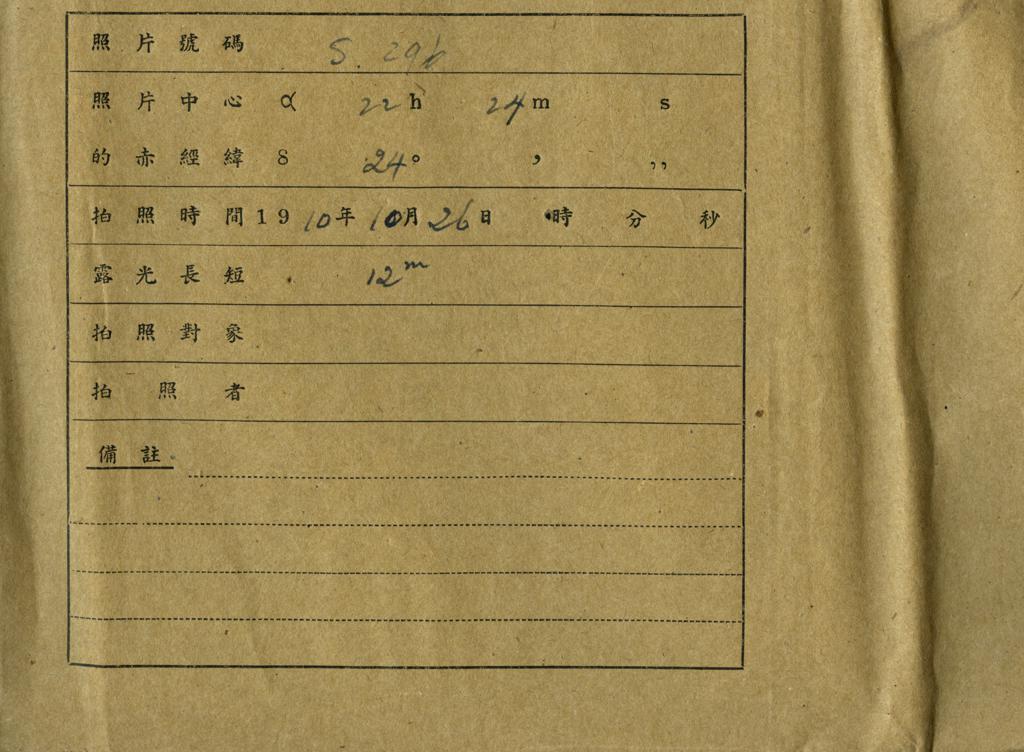 照片號碼 S. 296
照片中心 α 22h 24m s
的赤經緯 δ 24° ’ ’’
拍照時間1910年10月26日 時 分 秒
露光長短 12m
拍照對象
拍照者
備註